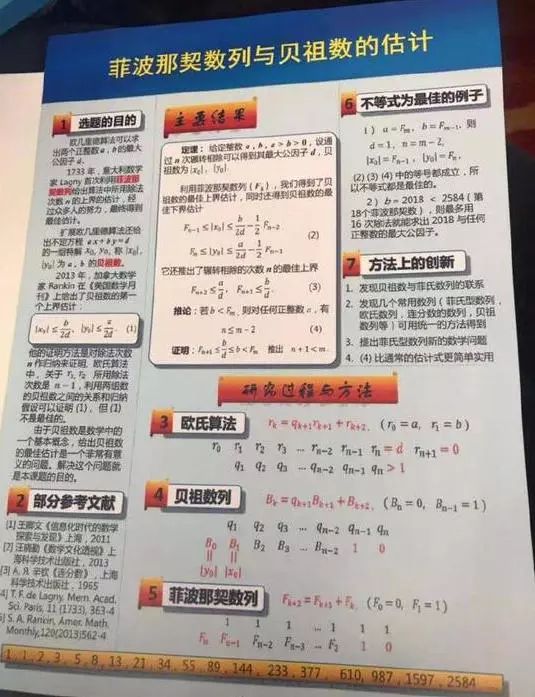 菲波那契数列与贝祖数的估计
1 选题的目的
欧几里德算法可以求
出两个正整数 a, b 的最大
公因子 d.
1733 年，意大利数学
家 Lagny 首次利用菲波那
契数列给出算法中所用除法
次数 n 的上界的估计，经
过众多人的努力，最终得到
最佳估计。
扩展欧几里德算法还给
出不定方程 ax+by=d
的一组特解 x₀, y₀, 称 |x₀|,
|y₀| 为 a, b 的贝祖数。
2013 年，加拿大数学
家 Rankin 在《美国数学月
刊》上给出了贝祖数的第一
个上界估计：
|x₀| ≤ b/d, |y₀| ≤ a/2d. (1)
他的证明方法是对除法次数
n 作归纳来证明. 欧氏算法
中，关于 r₁, r₂ 所用除法
次数是 n − 1，利用两组数
的贝祖数之间的关系和归纳
假设可以证明 (1)，但 (1)
不是最佳的。
由于贝祖数是数学中的
一个基本概念，给出贝祖数
的最佳估计是一个非常有意
义的问题。解决这个问题就
是本课题的目的。
2 部分参考文献
[1] 王卿文《信息化时代的数学
探索与发现》上海，2011
[2] 汪晓勤《数学文化透视》上
海科学技术出版社，2013
[3] A. Я. 辛钦《连分数》，上海
科学技术出版社，1965
4] T. F. de Lagny. Mem. Acad.
Sci. Paris, 11 (1733), 363-4
5] S. A. Rankin, Amer. Math.
Monthly,120(2013)562-4
主要结果
定理：给定整数 a, b, a > b > 0，设通
过 n 次辗转相除可以得到其最大公因子 d，贝
祖数为 |x₀|, |y₀|.
利用菲波那契数列 {Fₖ}，我们得到了贝
祖数的最佳上界估计，同时还得到贝祖数的最
佳下界估计
Fₙ₋₁ ≤ |x₀| ≤ b/2d − 1/2 Fₙ₋₂
(2)
Fₙ ≤ |y₀| ≤ a/2d − 1/2 Fₙ₋₁
它还推出了辗转相除的次数 n 的最佳上界
Fₙ₊₂ ≤ a/d, Fₙ₊₁ ≤ b/d. (3)
推论：若 b < Fₘ, 则对任何正整数 a，有
n ≤ m − 2 (4)
证明：Fₙ₊₁ ≤ b/d ≤ b < Fₘ 推出 n + 1 < m.
6 不等式为最佳的例子
1) a = Fₘ, b = Fₘ₋₁, 则
d = 1, n = m − 2,
|x₀| = Fₙ₋₁, |y₀| = Fₙ.
(2) (3) (4) 中的等号都成立，所
以不等式都是最佳的。
2) b = 2018 < 2584 (第
18个菲波那契数)，则最多用
16 次除法就能求出 2018 与任何
正整数的最大公因子。
7 方法上的创新
1. 发现贝祖数与菲氏数列的联系
2. 发现几个常用数列（菲氏型数列，
欧氏数列，连分数的数列，贝祖
数列等）可用统一的方法得到
3. 提出菲氏型数列新的数学问题
4. (4) 比通常的估计式更简单实用
研究过程与方法
3 欧氏算法 rₖ = qₖ₊₁rₖ₊₁ + rₖ₊₂, (r₀ = a, r₁ = b)
r₀ r₁ r₂ r₃ … rₙ₋₂ rₙ₋₁ rₙ = d rₙ₊₁ = 0
q₁ q₂ q₃ … qₙ₋₂ qₙ₋₁ qₙ > 1
4 贝祖数列 Bₖ = qₖ₊₁Bₖ₊₁ + Bₖ₊₂, (Bₙ = 0, Bₙ₋₁ = 1)
q₁ q₂ q₃ … qₙ₋₂ qₙ₋₁ qₙ
B₀ B₁ B₂ B₃ … Bₙ₋₂ 1 0
|| ||
|y₀| |x₀|
5 菲波那契数列 Fₖ₊₂ = Fₖ₊₁ + Fₖ, (F₀ = 0, F₁ = 1)
1 1 1 … 1 1 1
Fₙ Fₙ₋₁ Fₙ₋₂ Fₙ₋₃ … F₂ 1 0
1, 1, 2, 3, 5, 8, 13, 21, 34, 55, 89, 144, 233, 377, 610, 987, 1597, 2584